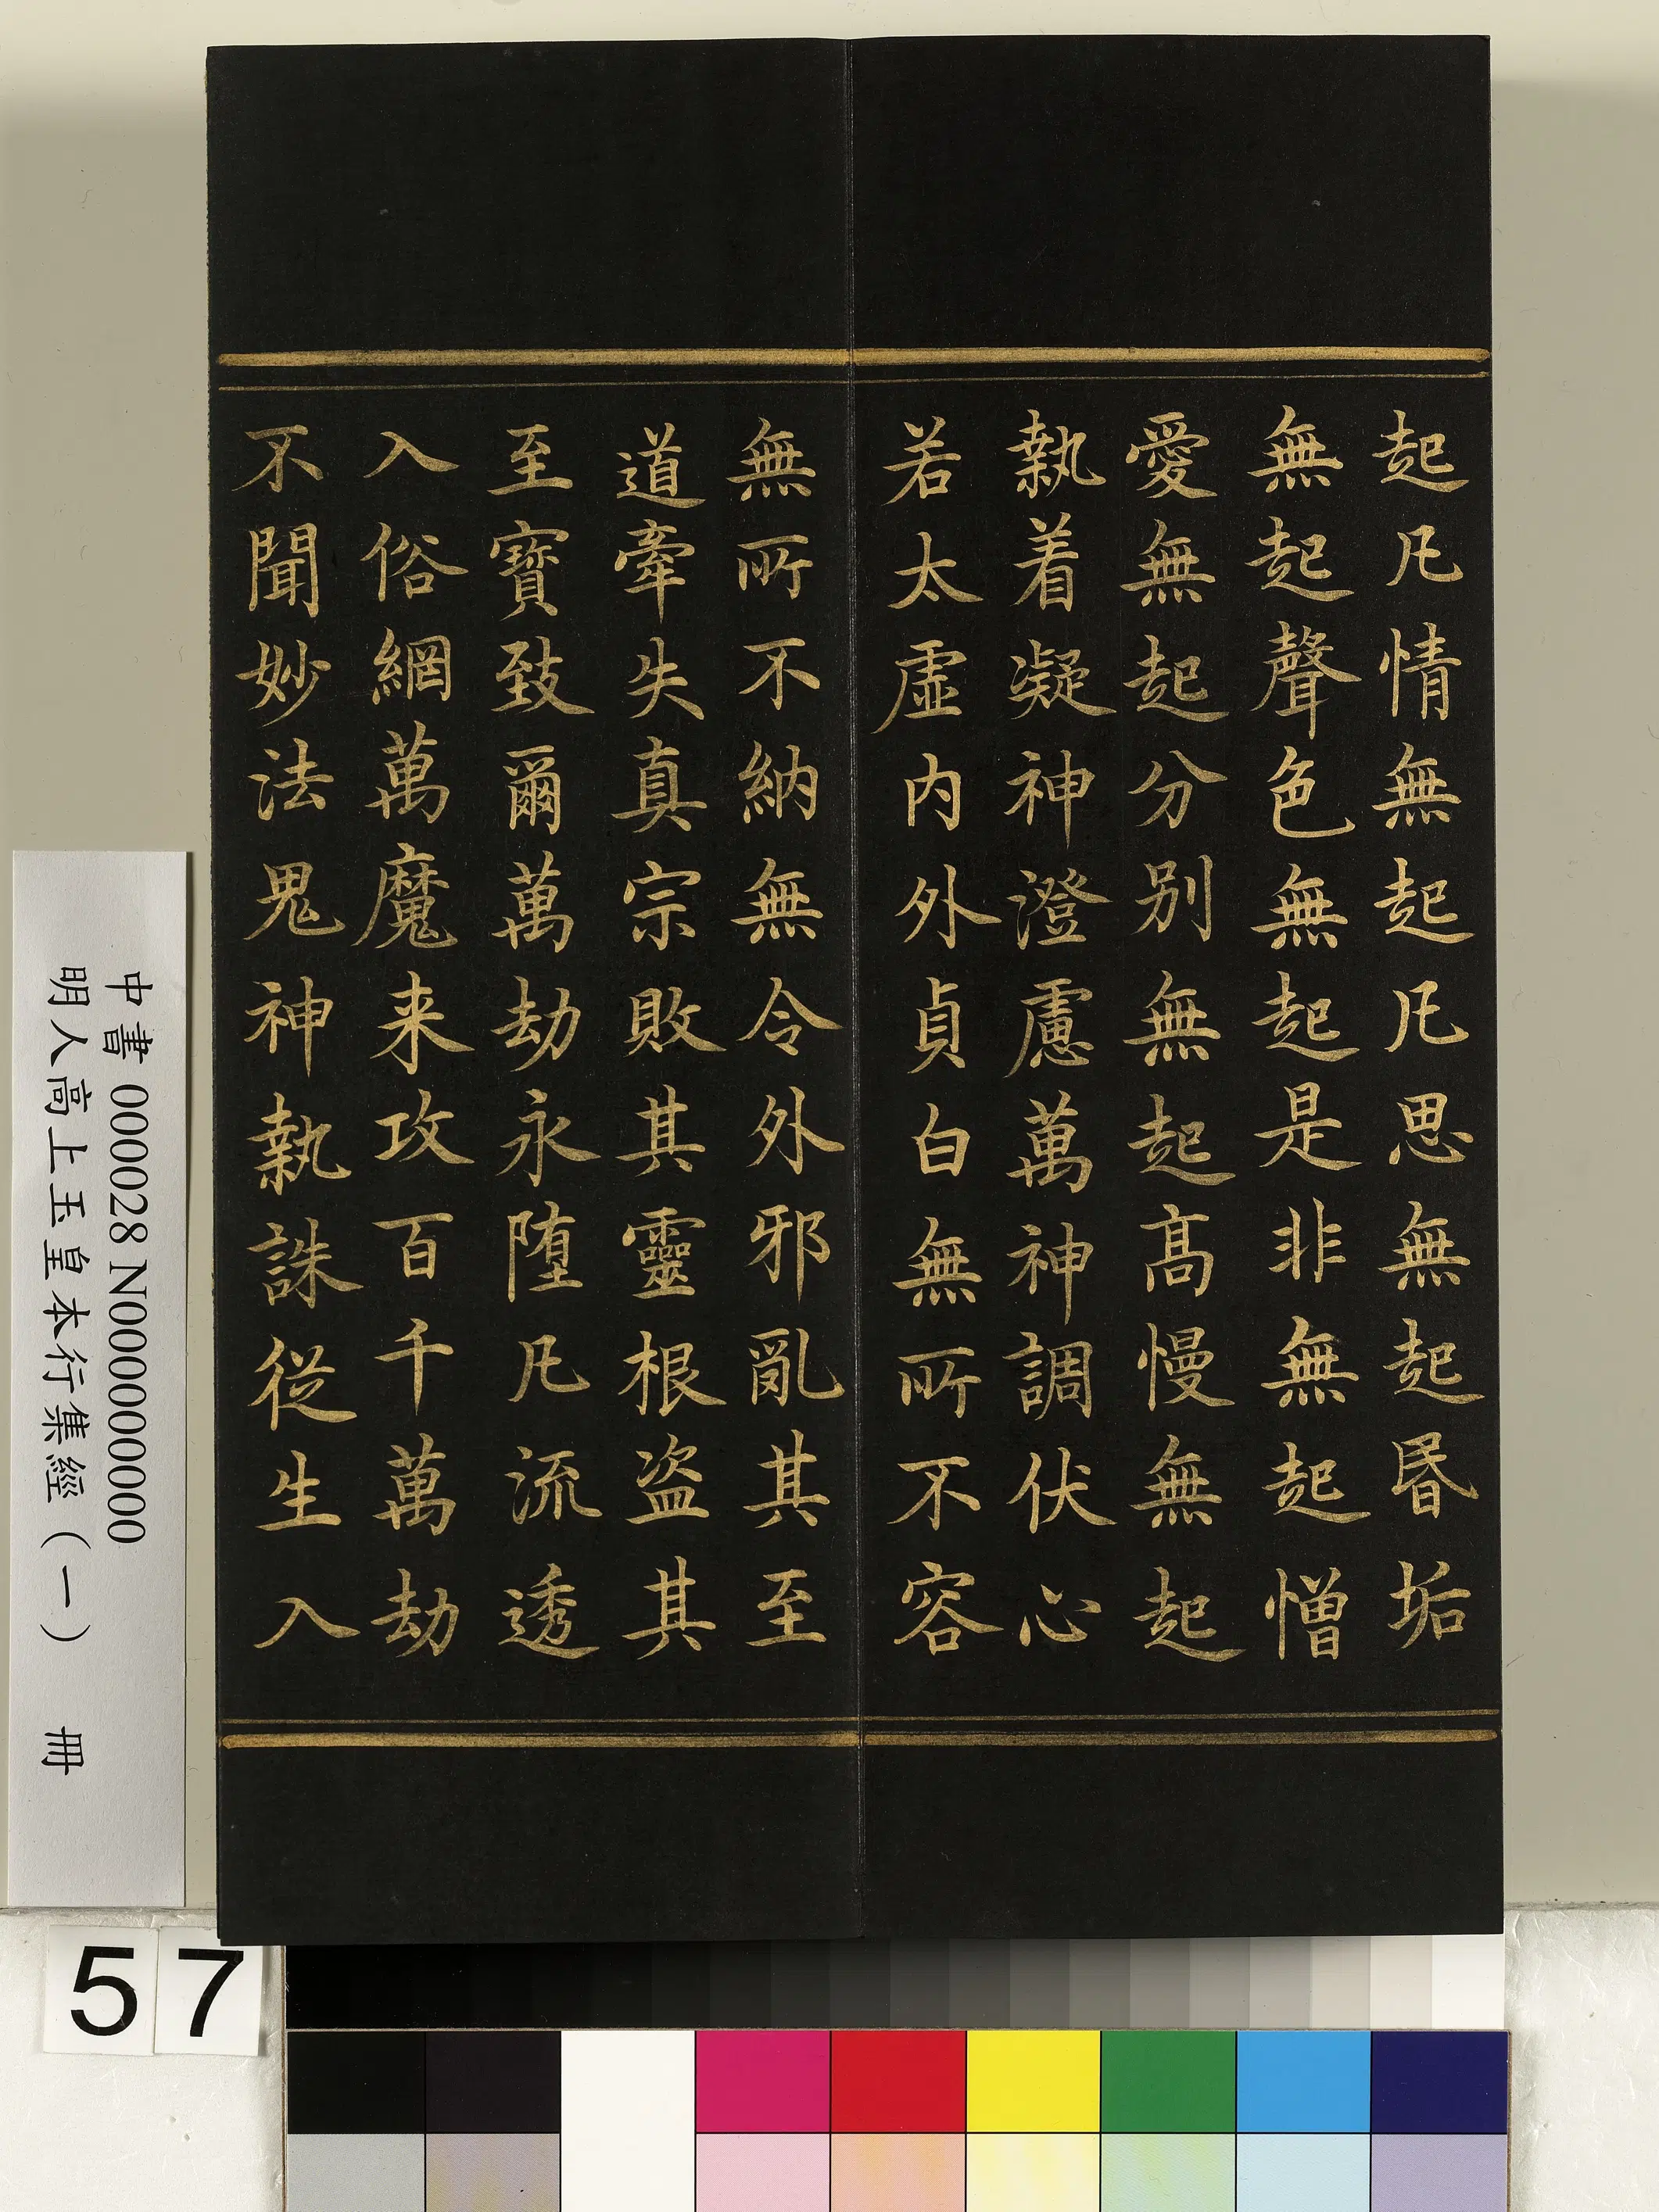 起凡情無起凡思無起昬垢
無起聲色無起是非無起憎
愛無起分别無起高慢無起
執着凝神澄慮萬神調伏心
若太虛内外貞白無所不容
無所不納無令外邪亂其至
道牽失真宗敗其靈根盜其
至寶致爾萬劫永墮凡流透
入俗網萬魔来攻百千萬劫
不聞妙法鬼神執誅從生入
中書 000028 N000000000
明人高上玉皇本行集經（一） 冊
57